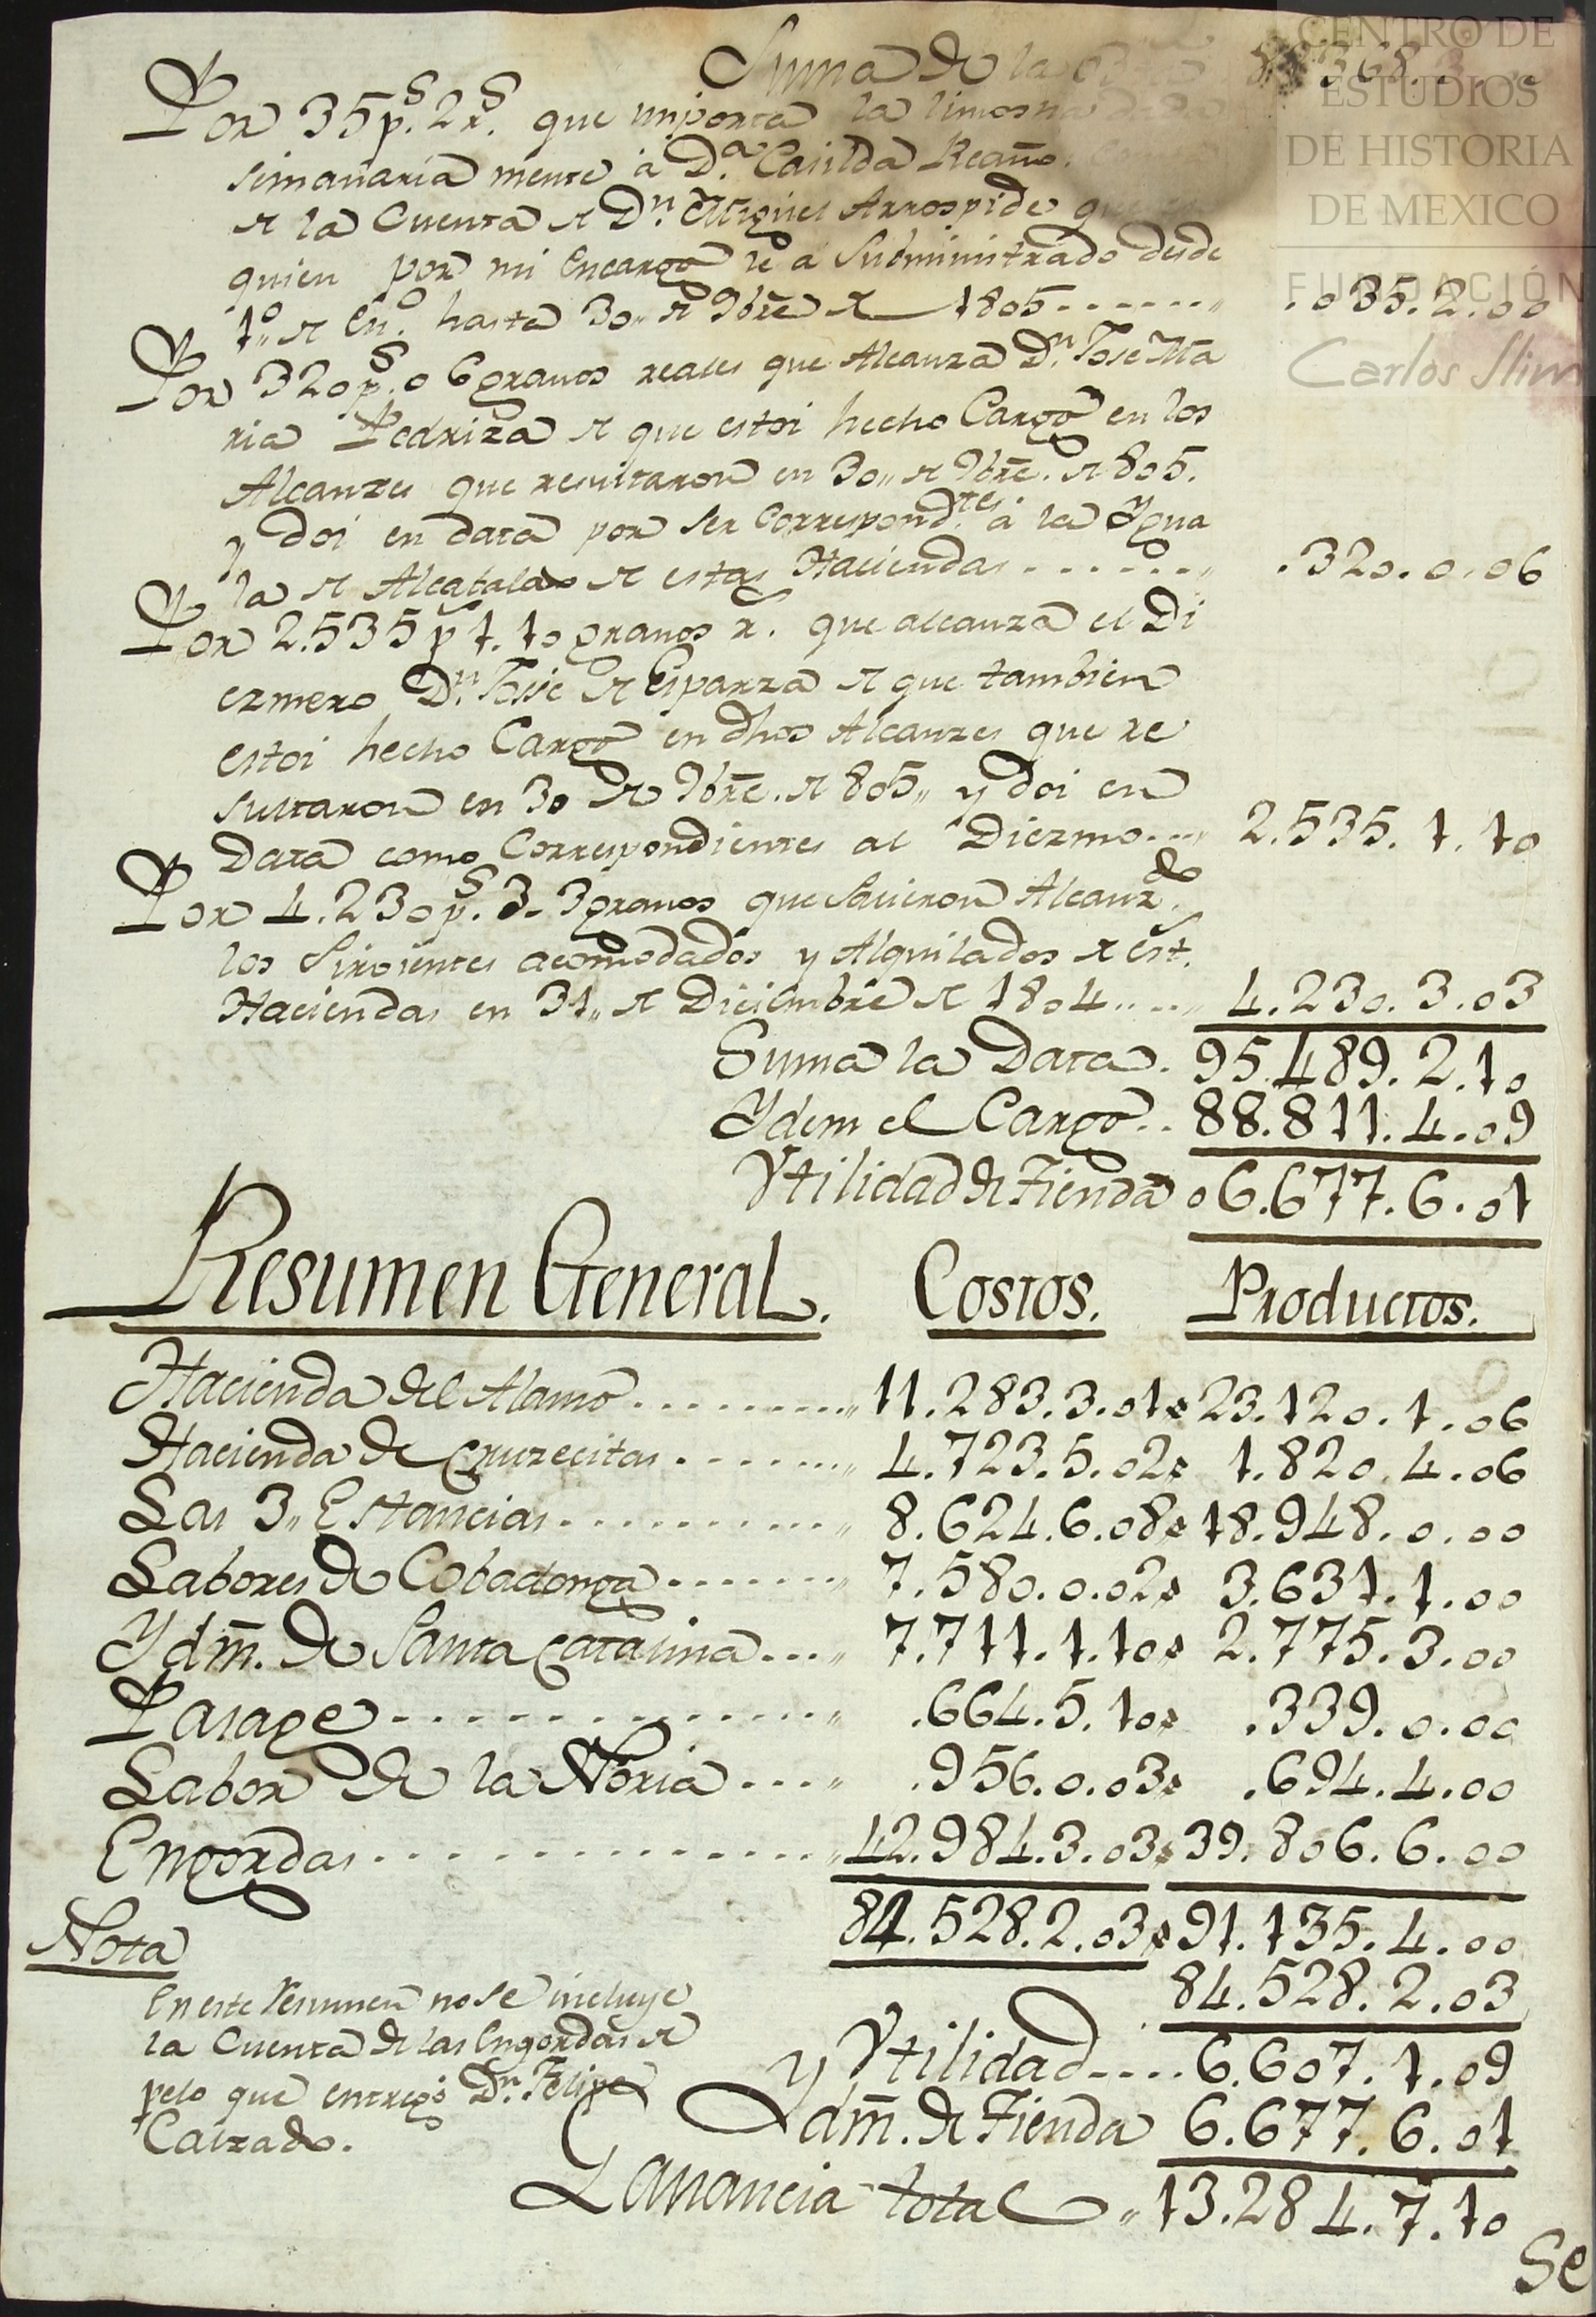 Suma de la 88.368.3.
Por 35 p.s 2 r.s que importa la limosna
semanaria mente â D.a Casilda Reaño.
de la Cuenta de D.n Miguel Arrospide
quien por mi encargo se â Subministrado desde
1.o de En.o hasta 30,, de 9bre de 1805 .035.2.00
Por 320 p.s 0 6 granos reales que Alcanza D.n Jose Ma
ria Pedriza de que estoi hecho Cargo en los
Alcanzes que resultaron en 30,, de 9bre. de 805.
y doi en data por ser Correspond.tes â la Ygua
la de Alcabalas de estas Haciendas .320.0.06
Por 2.535 p.s 1. 10 granos r.s que alcanza el Di
ezmero D.n Josse de Esparza de que tambien
estoi hecho Cargo en dhos Alcanzes que re
sultaron en 30 de 9bre. de 805,, y doi en
Data como Correspondientes al Diezmo 2.535.1.10
Por 4.230 p.s 3. 3 granos que Salieron Alcanz.do
los Sirvientes acomodados y Alquilados de est.s
Haciendas en 31,, de Diciembre de 1804 4.230.3.03
Suma la Data. 95.489.2.10
Ydem el Cargo.. 88.811.4.09
Vtilidad de Tienda 06.677.6.01
Resumen General. Costos. Productos.
Hacienda del Alamo 11.283.3.01 23.120.1.06
Hacienda de Cruzecitas 4.723.5.02 1.820.4.06
Las 3,, Estancias 8.624.6.08 18.948.0.00
Labores de Cobadonga 7.580.0.02 3.631.1.00
Ydm. de Santa Catalina 7.711.1.10 2.775.3.00
Pasage .664.5.10 .339.0.00
Labor de la Noria .956.0.03 .694.4.00
Engordas 42.984.3.03 39.806.6.00
84.528.2.03 91.135.4.00
84.528.2.03
Nota
En este resumen no se incluye
la Cuenta de las Engordas de
pelo que entregó D.n Felipe
Calzado.
Vtilidad 6.607.1.09
Ydm. de Tienda 6.677.6.01
Ganancia total 13.284.7.10
Se
CENTRO DE
ESTUDIOS
DE HISTORIA
DE MEXICO
FUNDACIÓN
Carlos Slim